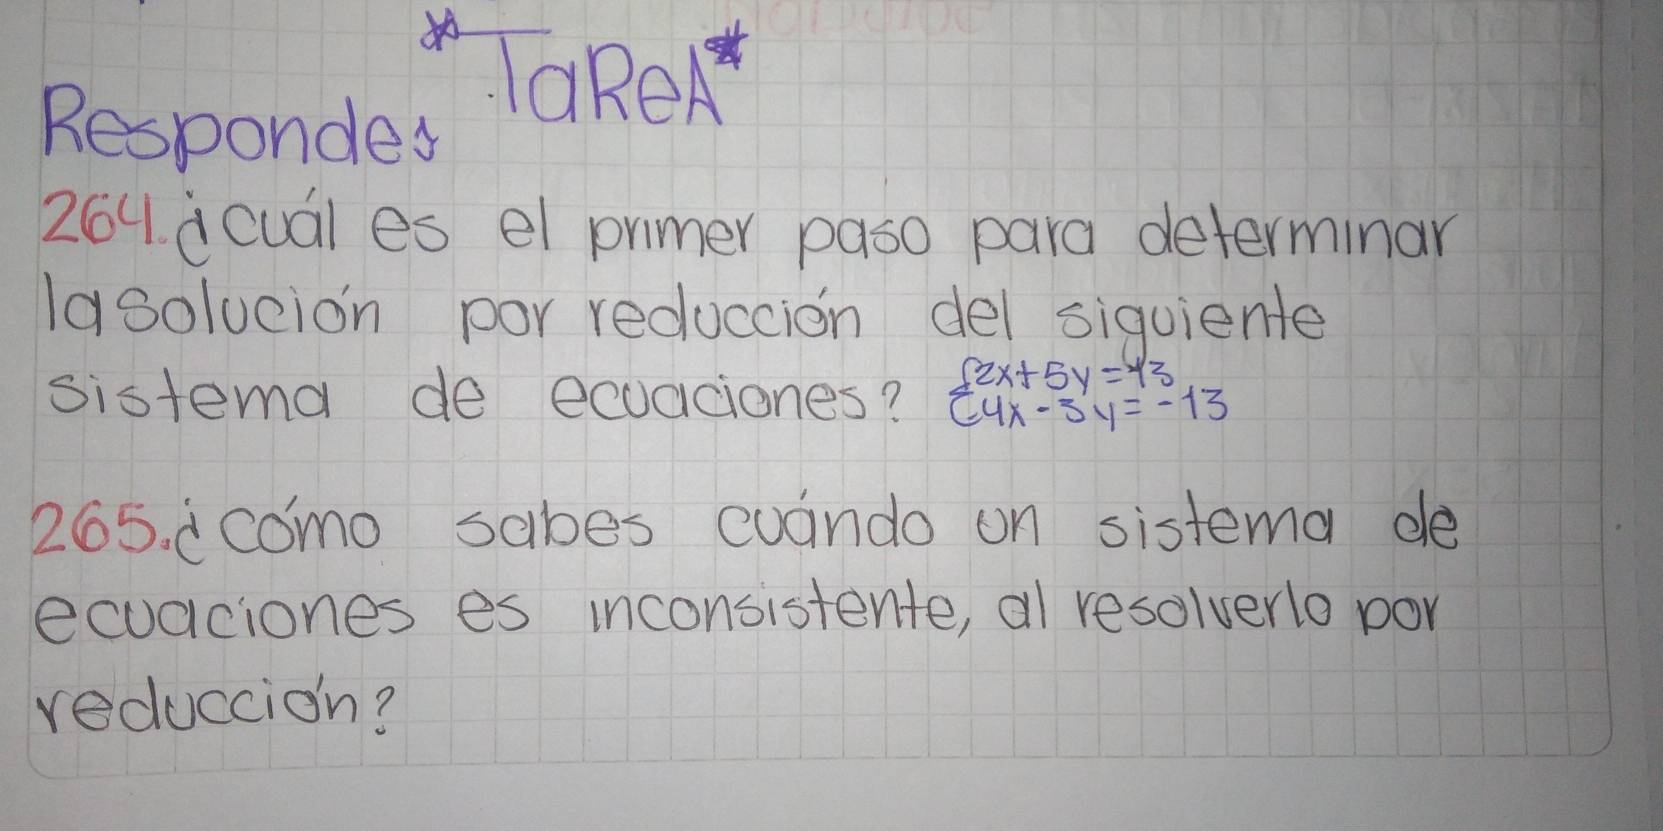 *TaReA*
Responde:
264. ¿cuál es el primer paso para determinar
la solución por reducción del siguiente
sistema de ecuaciones? {2x+5y=13
4x-3y=-13
265. ¿cómo sabes cuándo un sistema de
ecuaciones es inconsistente, al resolverlo por
reducción?